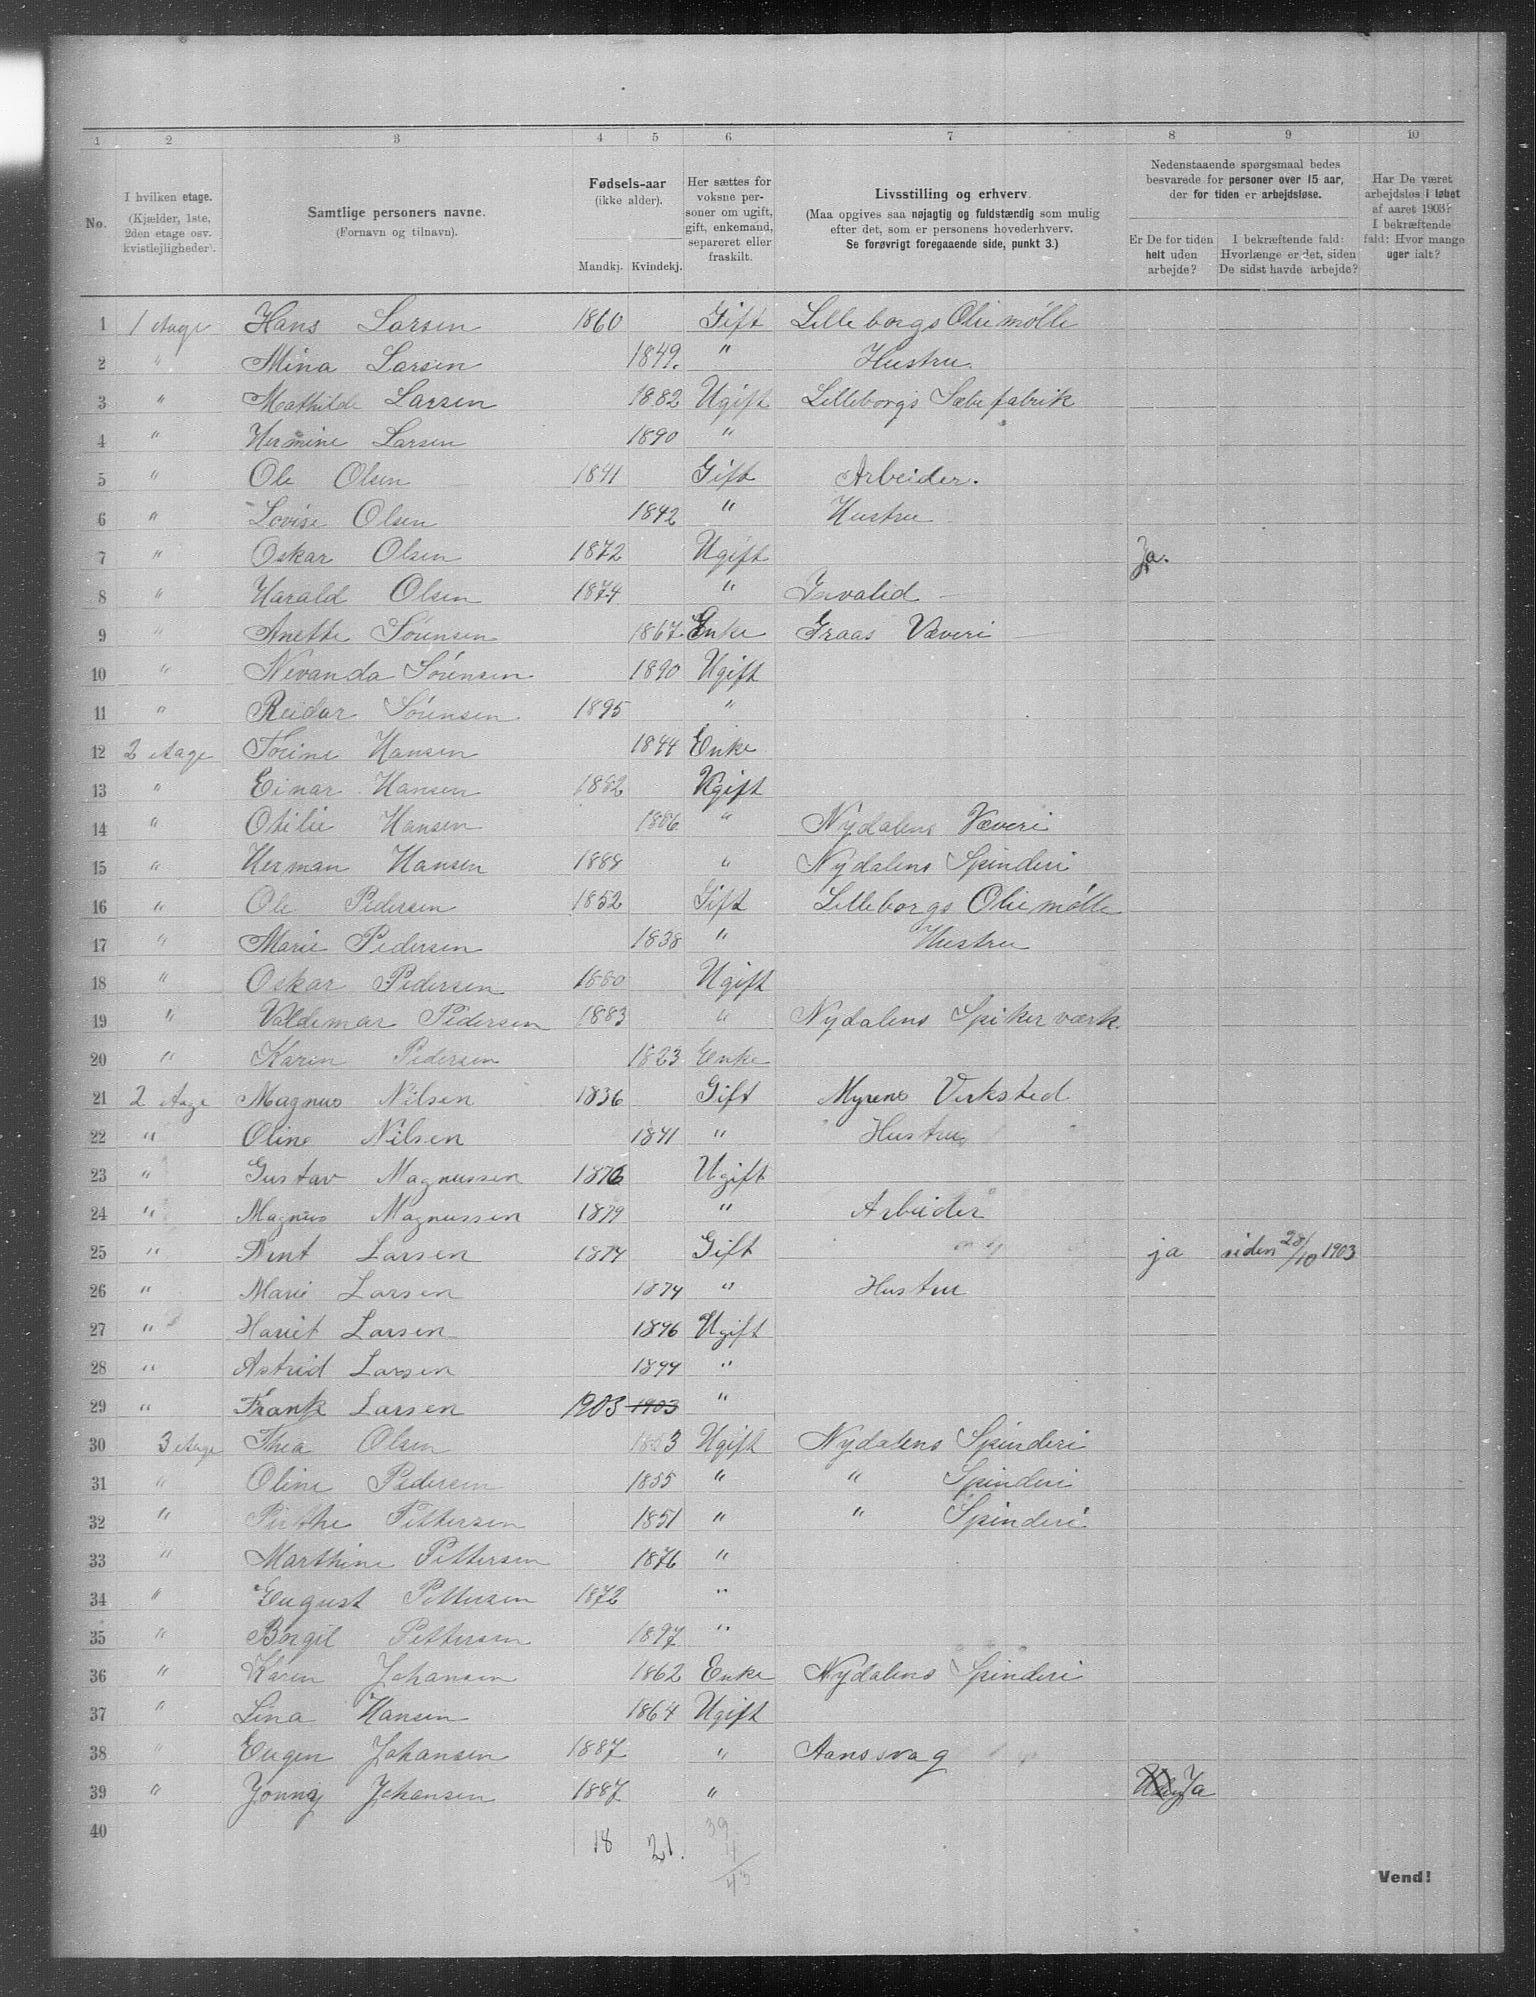 1 2 3 4 5 6 7 8 9 10
No. I hvilken etage. (Kjælder, 1ste, 2den etage osv. kvistlejligheder). Samtlige personers navne. (Fornavn og tilnavn). Fødsels-aar (ikke alder). Mandkj. Kvindekj. Her sættes for voksne personer om ugift, gift, enkemand, separeret eller fraskilt. Livsstilling og erhverv. (Maa opgives saa nøjagtig og fuldstærdig som mulig efter det, som er personens hovederhverv. Se forøvrigt foregaaende side, punkt 3.) Nedenstaaende spørgsmaal bedes besvarede for personer over 15 aar, der for tiden er arbejdsløse. Er De for tiden helt uden arbejde? I bekræftende fald: Hvorlænge er det, siden De sidst havde arbejde? Har De været arbejdsløs i løbet af aaret 1903? I bekræftende fald: Hvor mange uger ialt?
1 1 Etage Hans Larsen 1860 Gift Lilleborgs Oliemølle
2 " Mina Larsen 1849. " Hustru.
3 " Mathilde Larsen 1882 Ugift Lilleborgs Sæbefabrik
4 " Hermine Larsen 1890 "
5 " Ole Olsen 1841 Gift Arbeider.
6 " Lovise Olsen 1842 " Hustru
7 " Oskar Olsen 1872 Ugift Ja.
8 " Harald Olsen 1874 " Invalid
9 " Anette Sørensen 1867 Enke Graas Væveri
10 " Nevanda Sørensen 1890 Ugift
11 " Reidar Sørensen 1895 "
12 2 Etage Hansen 1844 Enke
13 " Einar Hansen 1882 Ugift
14 " Otilie Hansen 1886 " Nydalens Væveri
15 " Herman Hansen 1888 " Nydalens Spinderi
16 " Ole Pedersen 1852 Gift Lilleborgs Oliemølle
17 " Marie Pedersen 1838 " Hustru
18 " Oskar Pedersen 1880 Ugift
19 " Valdemar Pedersen 1883 " Nydalens Spikerværk.
20 " Karen Pedersen 1823 Enke
21 2 Etage Magnus Nilsen 1836 Gift Myrens Verksted
22 " Oline Nilsen 1841 " Hustru
23 " Gustav Magnussen 1876 Ugift
24 " Magnus Magnussen 1879 " Arbeider
25 " Arnt Larsen 1874 Gift ja siden 28/10 1903
26 " Marie Larsen 1874 " Hustru
27 " Hariet Larsen 1896 Ugift
28 " Astrid Larsen 1899 "
29 " Frank Larsen 1903 1903 "
30 3 Etage Thea Olsen 1853 Ugift Nydalens Spinderi
31 " Oline Pedersen 1855 " " Spinderi
32 " Pettersen 1851 " " Spinderi
33 " Marthine Pettersen 1876 "
34 " Eugust Pettersen 1872 "
35 " Borgil Pettersen 1897 "
36 " Karen Johansen 1862 Enke Nydalens Spinderi
37 " Lina Hansen 1864 Ugift
38 " Eugen Johansen 1887 " Aanssvag
39 " Johansen 1887 " Ja
40 18 21. 39
4
43
Vend!